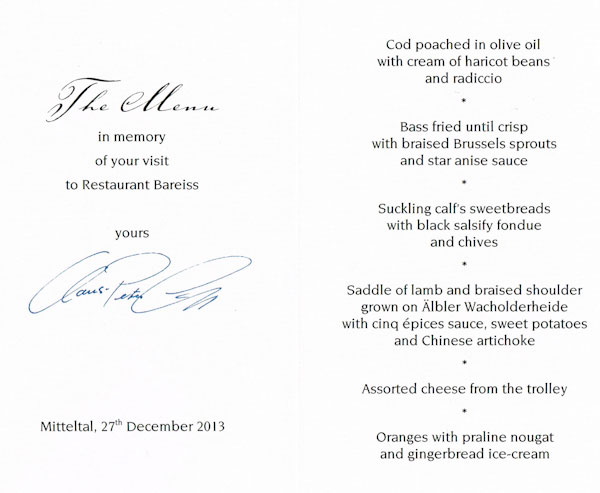 The Menu
in memory
of your visit
to Restaurant Bareiss
yours
Claus-Peter
Mitteltal, 27th December 2013
Cod poached in olive oil
with cream of haricot beans
and radiccio
*
Bass fried until crisp
with braised Brussels sprouts
and star anise sauce
*
Suckling calf's sweetbreads
with black salsify fondue
and chives
*
Saddle of lamb and braised shoulder
grown on Älbler Wacholderheide
with cinq épices sauce, sweet potatoes
and Chinese artichoke
*
Assorted cheese from the trolley
*
Oranges with praline nougat
and gingerbread ice-cream